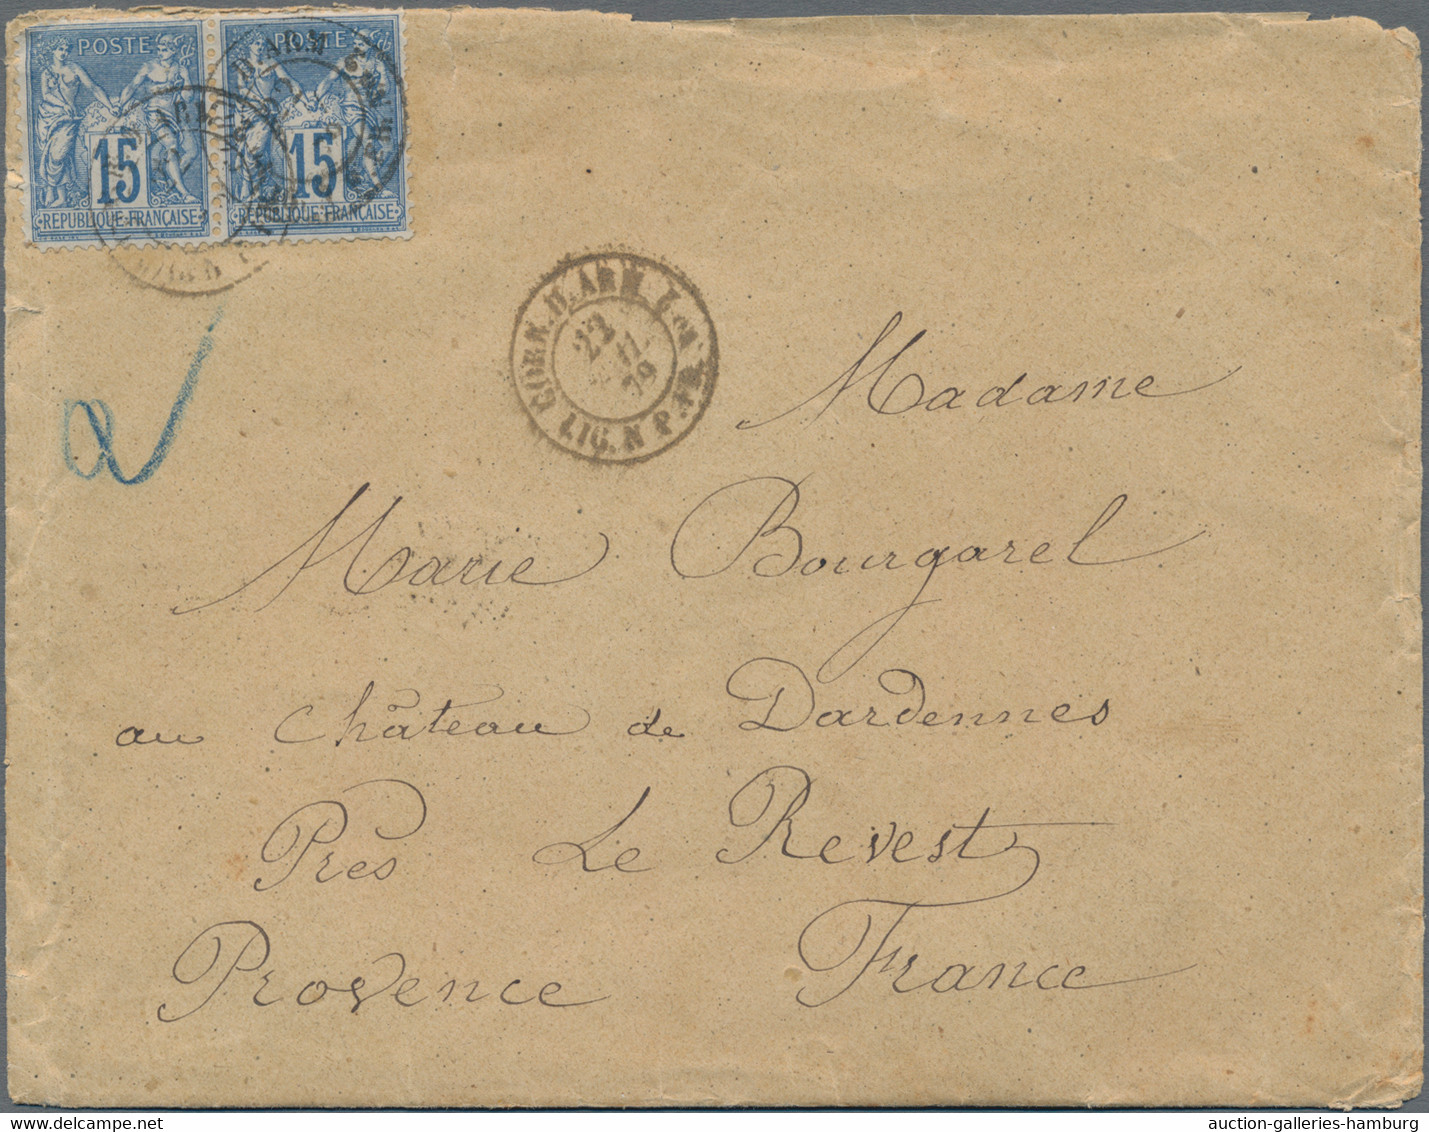 POSTE POSTE
15 15
REPUBLIQUE FRANÇAISE REPUBLIQUE FRANÇAISE
CORR. D. ARM.
23
79
LIG. N
Madame
Marie Bourgarel
au Château de Dardennes
Près Le Revest
Provence France
auction-galleries-hamburg